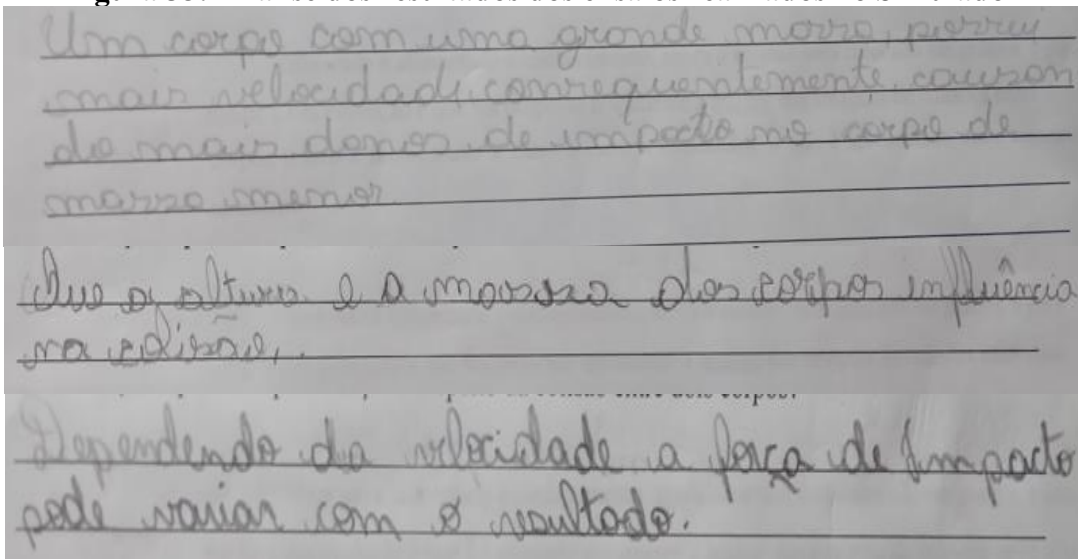 Um corpo com uma grande massa, possui
mais velocidade, consequentemente causan
do mais danos de impacto no corpo de
massa menor
Que a altura e a massa dos corpos influência
na colisão.
entre dois corpos?
Dependendo da velocidade a força de impacto
pode variar com o resultado.